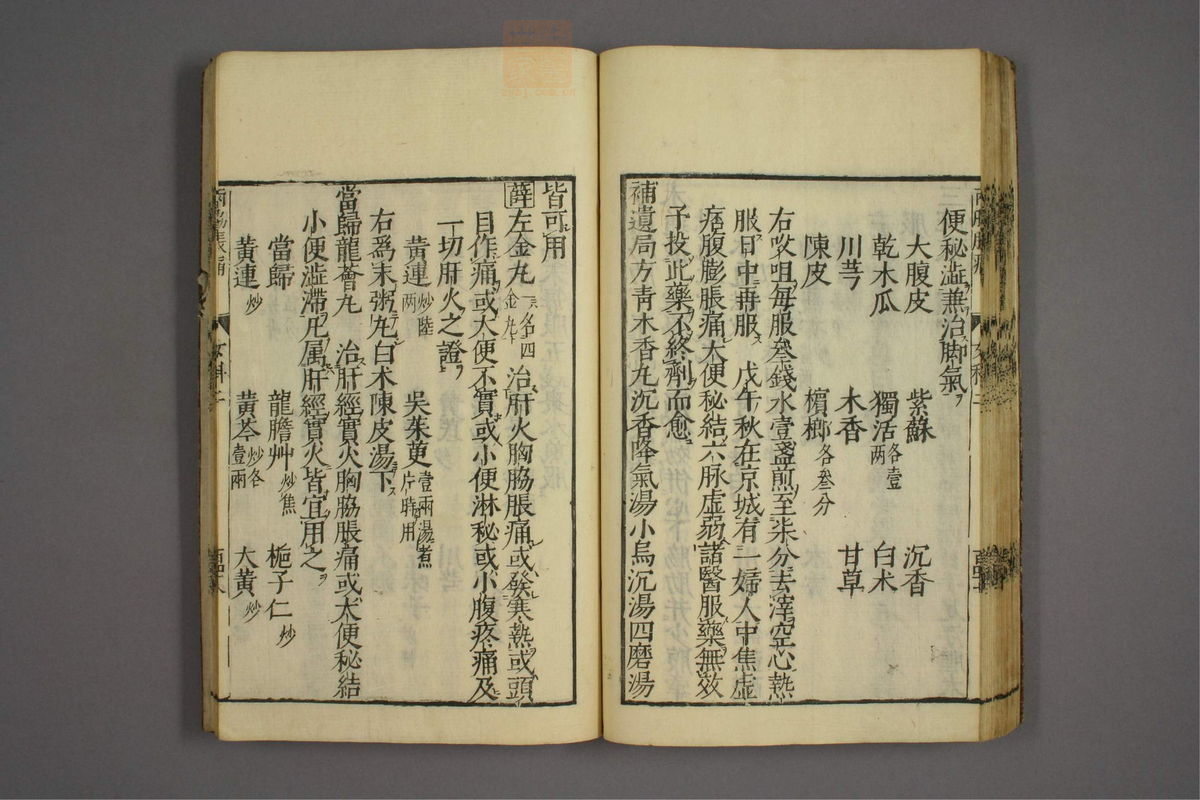 便秘澁兼治脚氣
大腹皮 紫蘇 沉香
乾木瓜 獨活各壹两 白术
川芎 木香 甘草
陳皮 檳榔各叄分
右㕮咀每服叄錢水壹盞煎至柒分去滓空心熱
服日中再服 戊午秋在京城有一婦人中焦虛
痞腹膨脹痛大便秘結六脉虛弱諸醫服藥無效
予投此藥不終劑而愈
補遺局方青木香丸沉香降氣湯小烏沉湯四磨湯
皆可用
薛左金丸一名四金丸 治肝火胸脇脹痛或發寒熱或頭
目作痛或大便不實或小便淋秘或小腹疼痛及
一切肝火之證
黄連炒陸两 吳茱萸壹兩湯煮片時用
右爲末粥丸白术陳皮湯下
當歸龍薈丸 治肝經實火胸脇脹痛或大便秘結
小便澁滯凡属肝經實火皆宜用之
當歸 龍膽艸炒焦 梔子仁炒
黄連炒 黄芩炒各壹兩 大黄炒
女科二